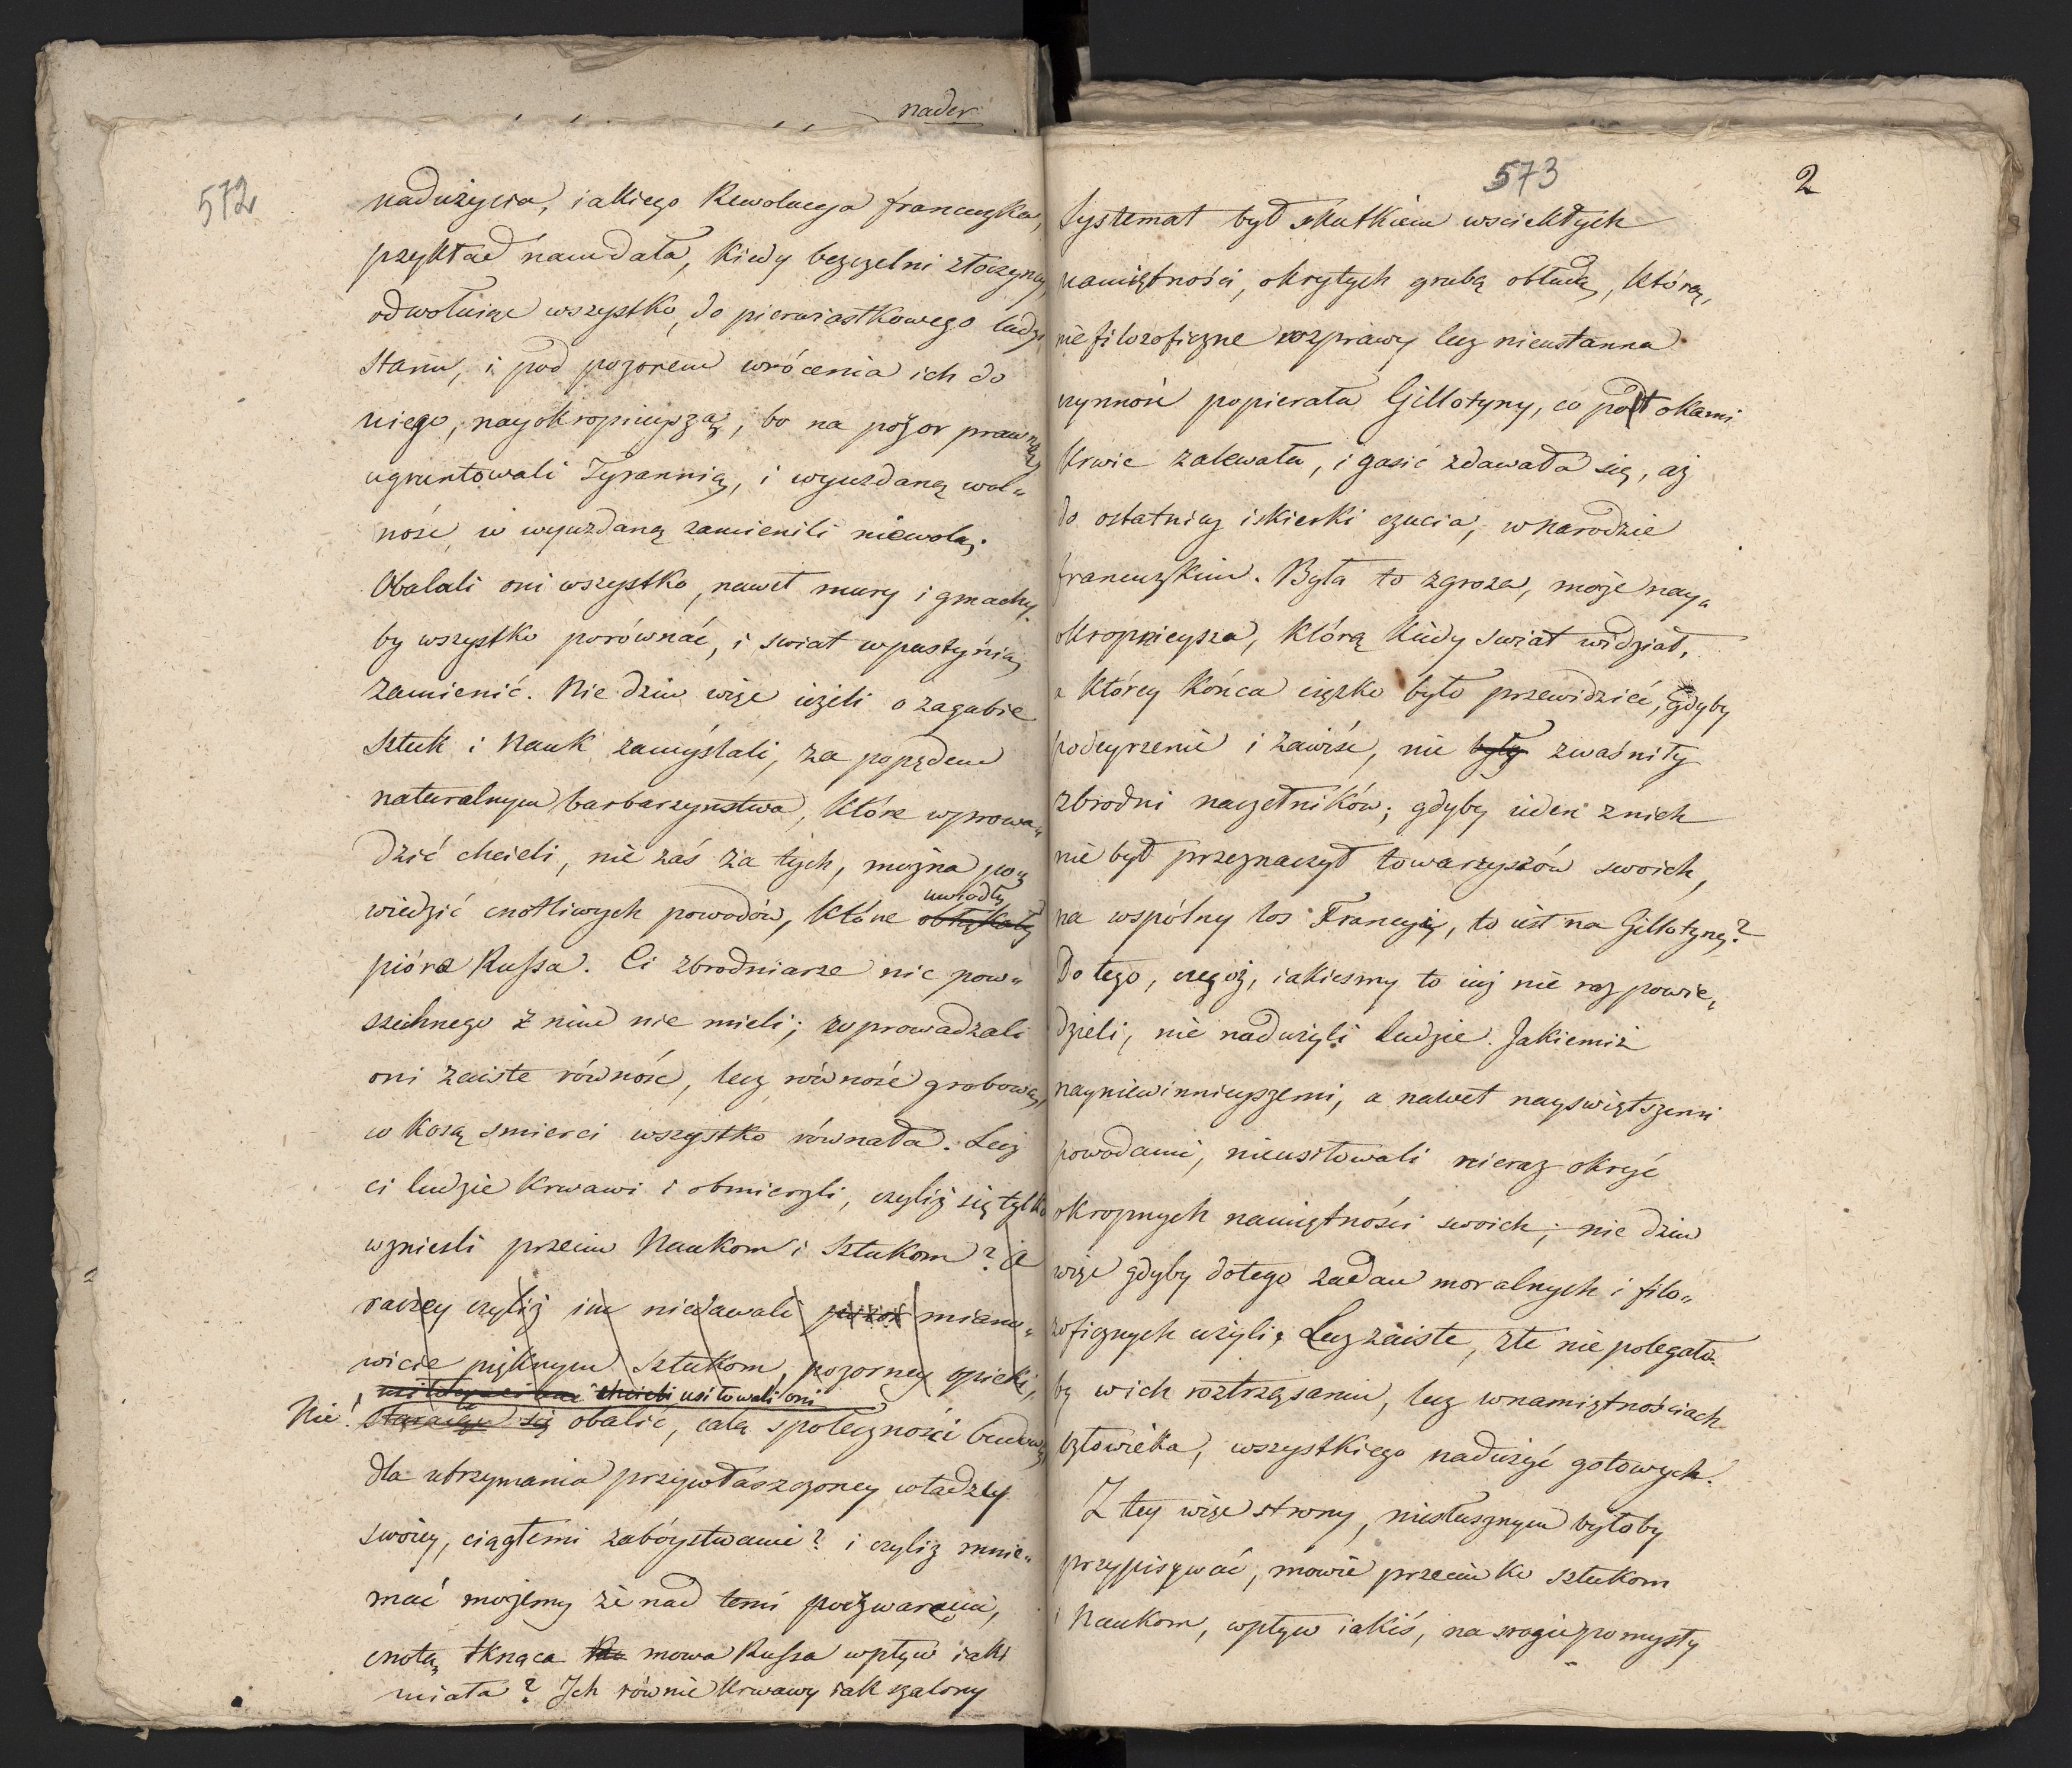 nader
572
nadużycia, iakiego Rewolucyja francuzka,
przykład nam dała, kiedy bezczelni złoczyńcy,
odwołuiąc wszystko, do pierwiastkowego ludzi
stanu, i pod pozorem wrócenia ich do
niego, nayokropnieyszą, bo na pozor prawną
ugruntowali Tyrannią, i wyuzdaną wol„
ność w wyuzdaną zamienili niewolą.
Obalali oni wszystko, nawet mury i gmachy,
by wszystko porównać, i swiat w pustynią
zamienić. Nie dziw więc ieżeli o zagubie
Sztuk i Nauk zamyślali, za popędem
naturalnym barbarzynstwa, które wprowa„
dzić chcieli, nie zaś za tych, można po„
uwiodły
wiedzieć cnotliwych powodów, które obłąkały
pióro Russa. Ci zbrodniarze nic pow„
szechnego z nim nie mieli; zaprowadzali
oni zaiste równość, lecz równość grobową,
co kosą smierci wszystko równała. Lecz
ci ludzie krwawi i obmierzli, czyliż się tylko
wznieśli przeciw Naukom i Sztukom? a
raczey czyliż im niedawali pozor miano„
wicie pięknym Sztukom pozorney opieki,
chcieli usitowali oni
Nie! staraiąc się obalić, całą społeczności budowę,
dla utrzymania przywłaszczoney władzy
swoiey, ciągłemi zabóystwami? i czyliż mnie„
mać możemy że nad temi poczwarami,
cnotą tknąca mowa Russa wpływ iaki
miała? Ich równie krwawy iak szalony
573
2
Systemat był skutkiem wsciekłych
namiętności, okrytych grubą obłudą, którą,
nie filozoficzne rozprawy lecz nieustanna
czynność popierała Gillotyny, co potokami
krwie zalewała, i gasić zdawała się, aż
do ostatniey iskierki czucia, w narodzie
francuzkim. Była to zgroza, może nay„
okropnieysza, którą kiedy swiat widział,
a którey końca ciężko było przewidzieć, Gdyby
podeyrzenie i zawiść, nie były zwaśniły
zbrodni naczelników; gdyby ieden z nich
nie był przeznaczył towarzyszów swoich,
na wspólny los Francyi, to iest na Gillotynę?
Do tego, czegóż, iakiesmy to iuż nie raz powie„
dzieli, nie nadużyli ludzie. Jakiemiż
nayniewinnieyszemi, a nawet nayswiętszemi
powodami, nieusiłowali nieraz okryć
okropnych namiętności swoich; nie dziw
więc gdyby dotego zadań moralnych i filo„
zoficznych użyli, Lecz zaiste, złe nie polegało„
by w ich roztrząsaniu, lecz w namiętnościach
człowieka, wszystkiego nadużyć gotowych.
Z tey więc strony, niesłusznym byłoby
przypisywać, mowie przeciwko sztukom
i Naukom, wpływ iakiś, na srogie pomysły